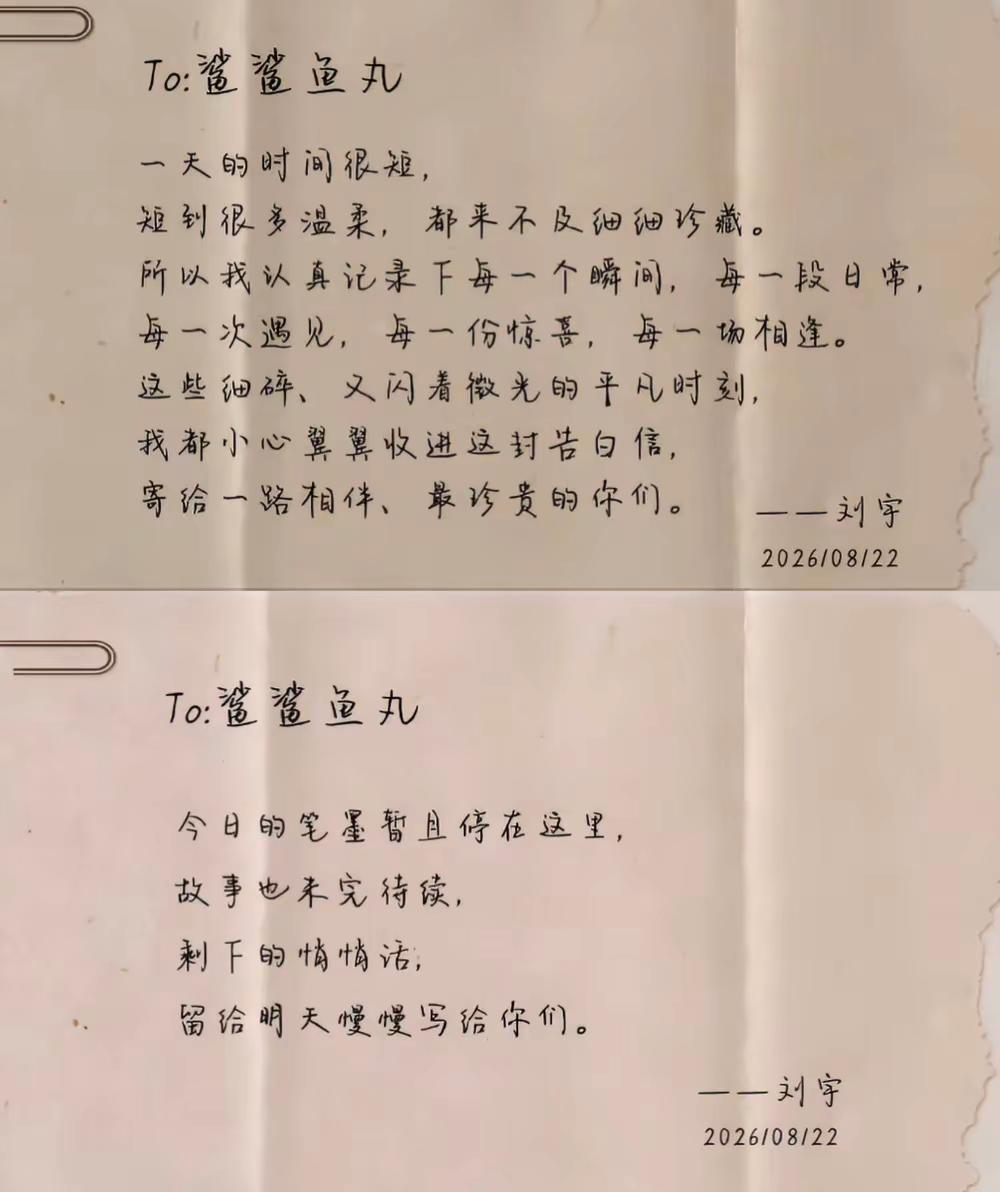 To:鲨鲨鱼丸
一天的时间很短,
短到很多温柔, 都来不及细细珍藏。
所以我认真记录下每一个瞬间, 每一段日常,
每一次遇见, 每一份惊喜, 每一场相逢。
这些细碎、又闪着微光的平凡时刻,
我都小心翼翼收进这封告白信,
寄给一路相伴、最珍贵的你们。
——刘宇
2026/08/22
To:鲨鲨鱼丸
今日的笔墨暂且停在这里,
故事也未完待续,
剩下的悄悄话,
留给明天慢慢写给你们。
——刘宇
2026/08/22